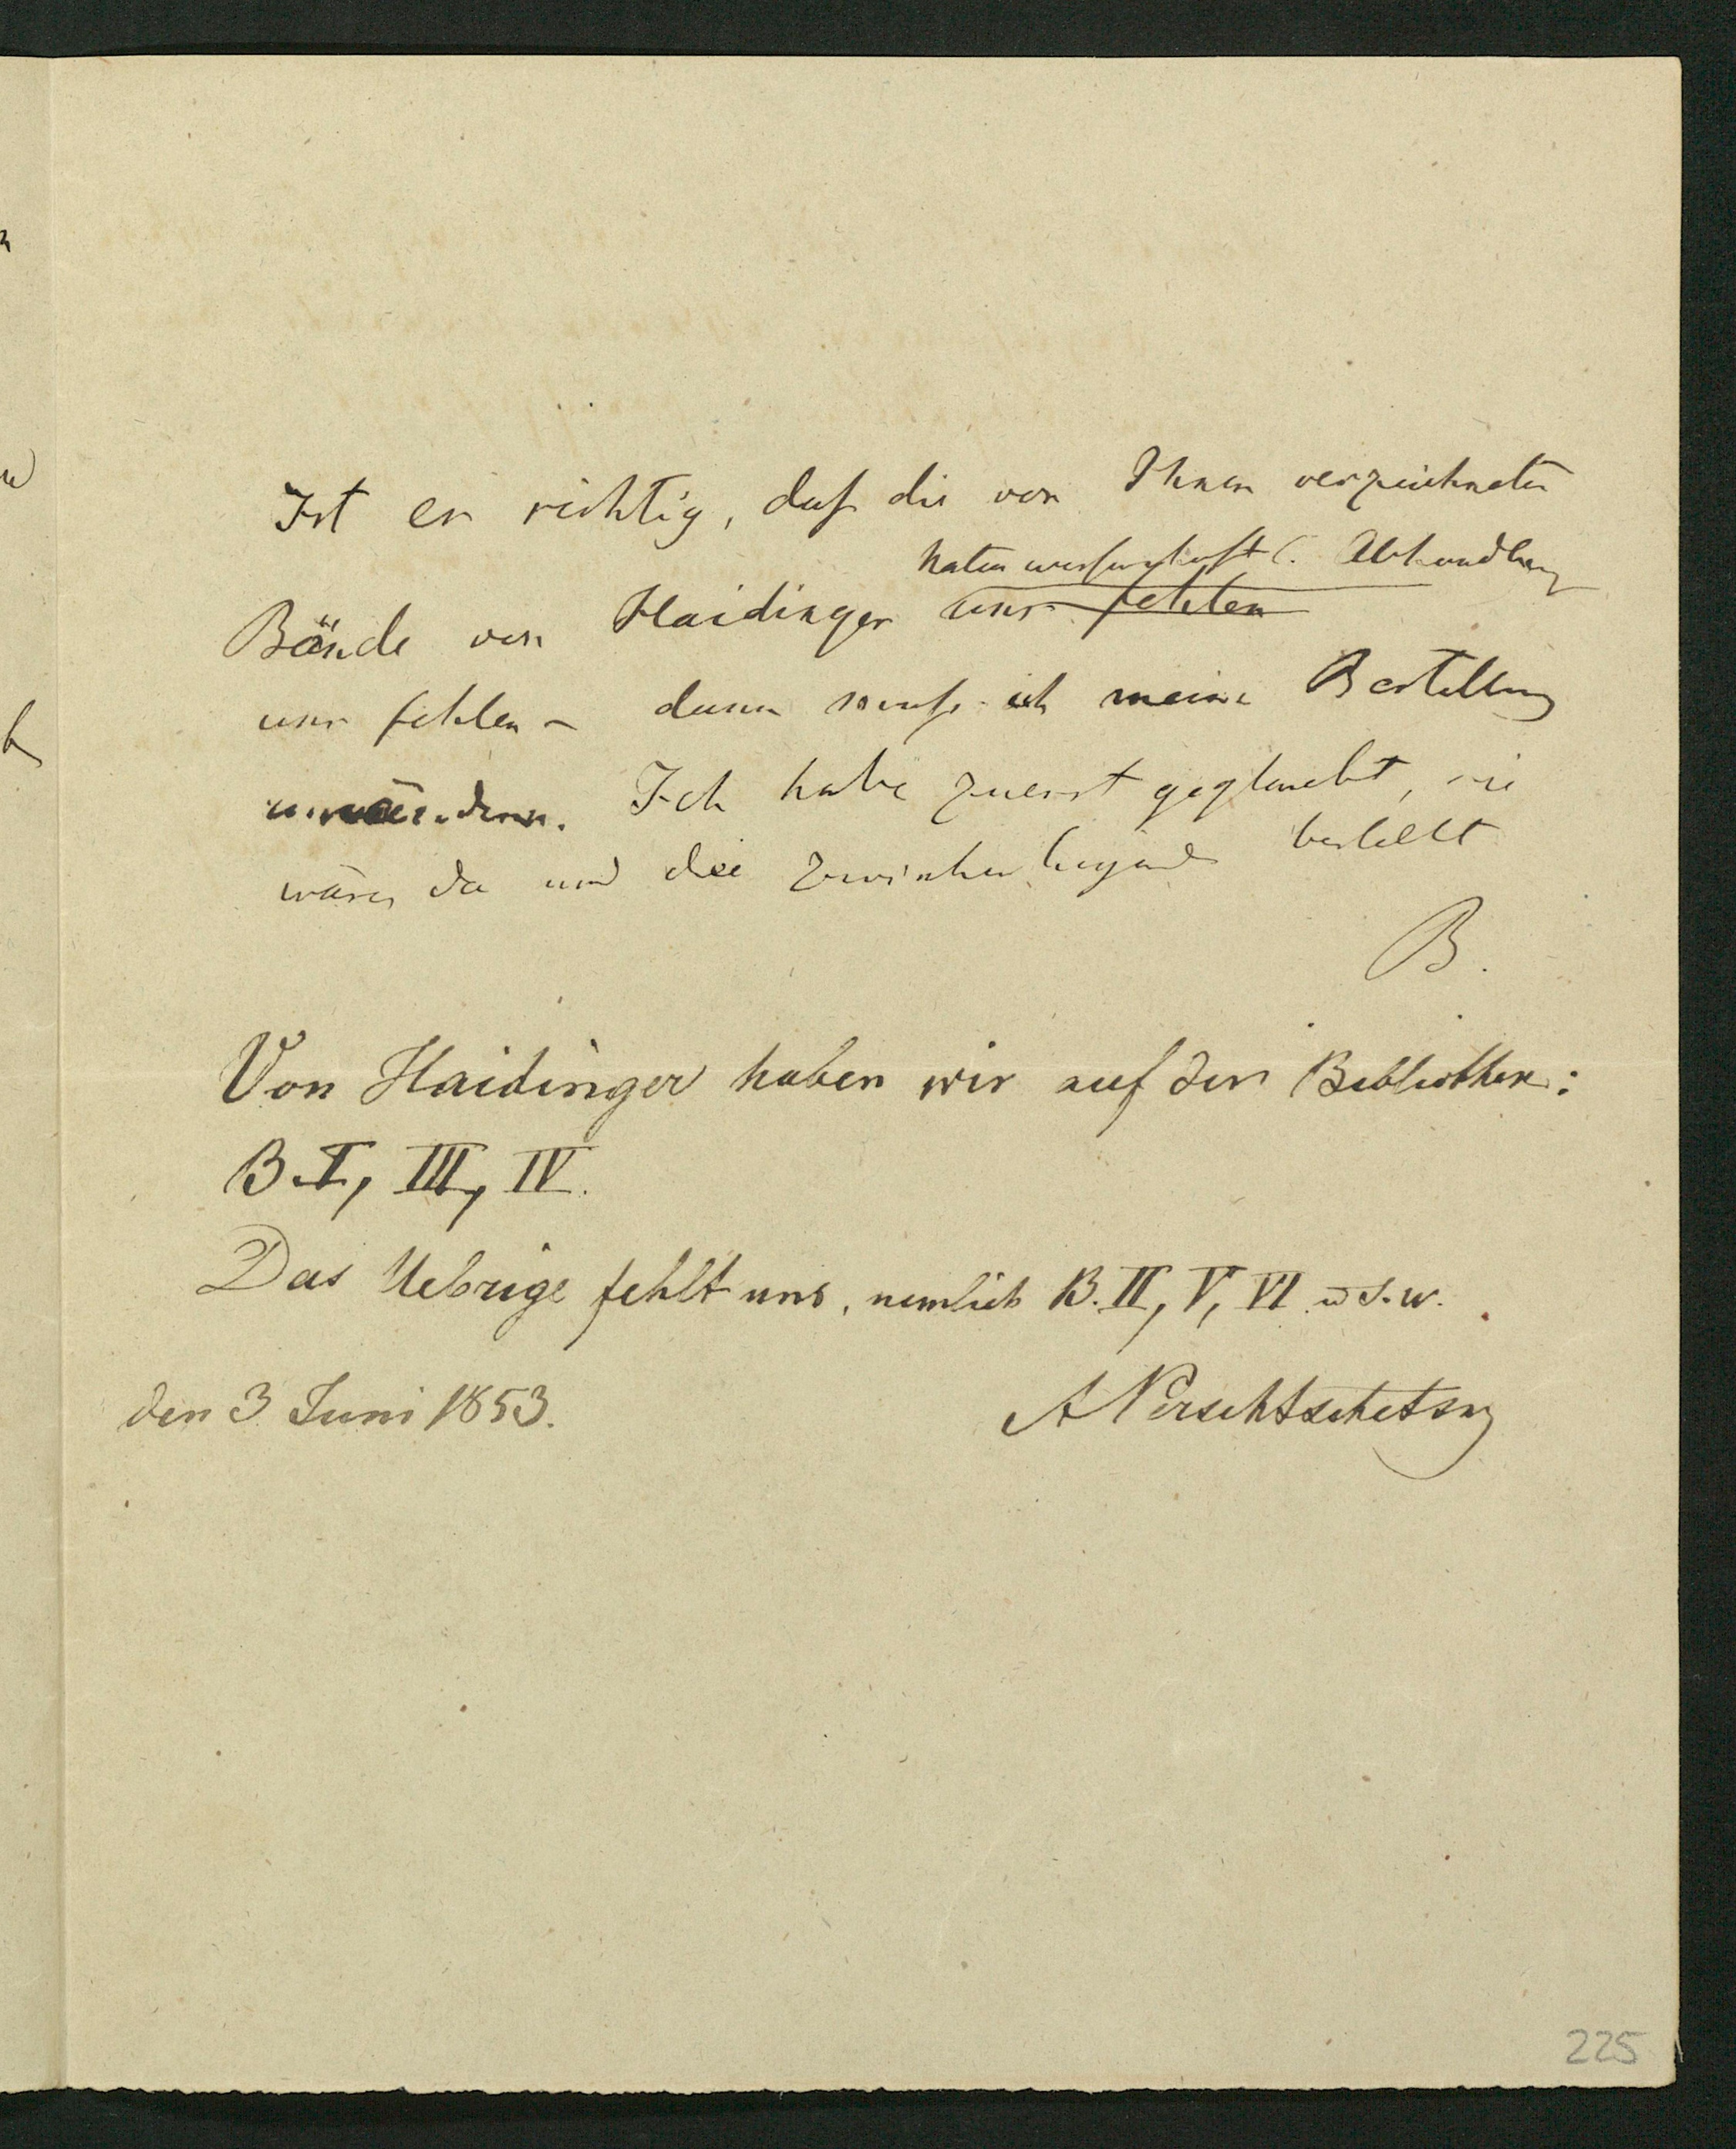 Ist es richtig, daß die von Ihnen verzeichneten
naturwissenschaftl. Abhandlung
Bände von Haidinger uns fehlen
uns fehlen – dann muß ich meine Bestellung
Ich habe zuerst geglaubt, sie
wären da und die zwischenliegende bestellt
B.
Von Haidinger haben wir auf der Bibliothek:
B. I, III, IV.
Das Uebrige fehlt uns, nemlich B. II, V, VI u. s. w.
den 3 Juni 1853.
225